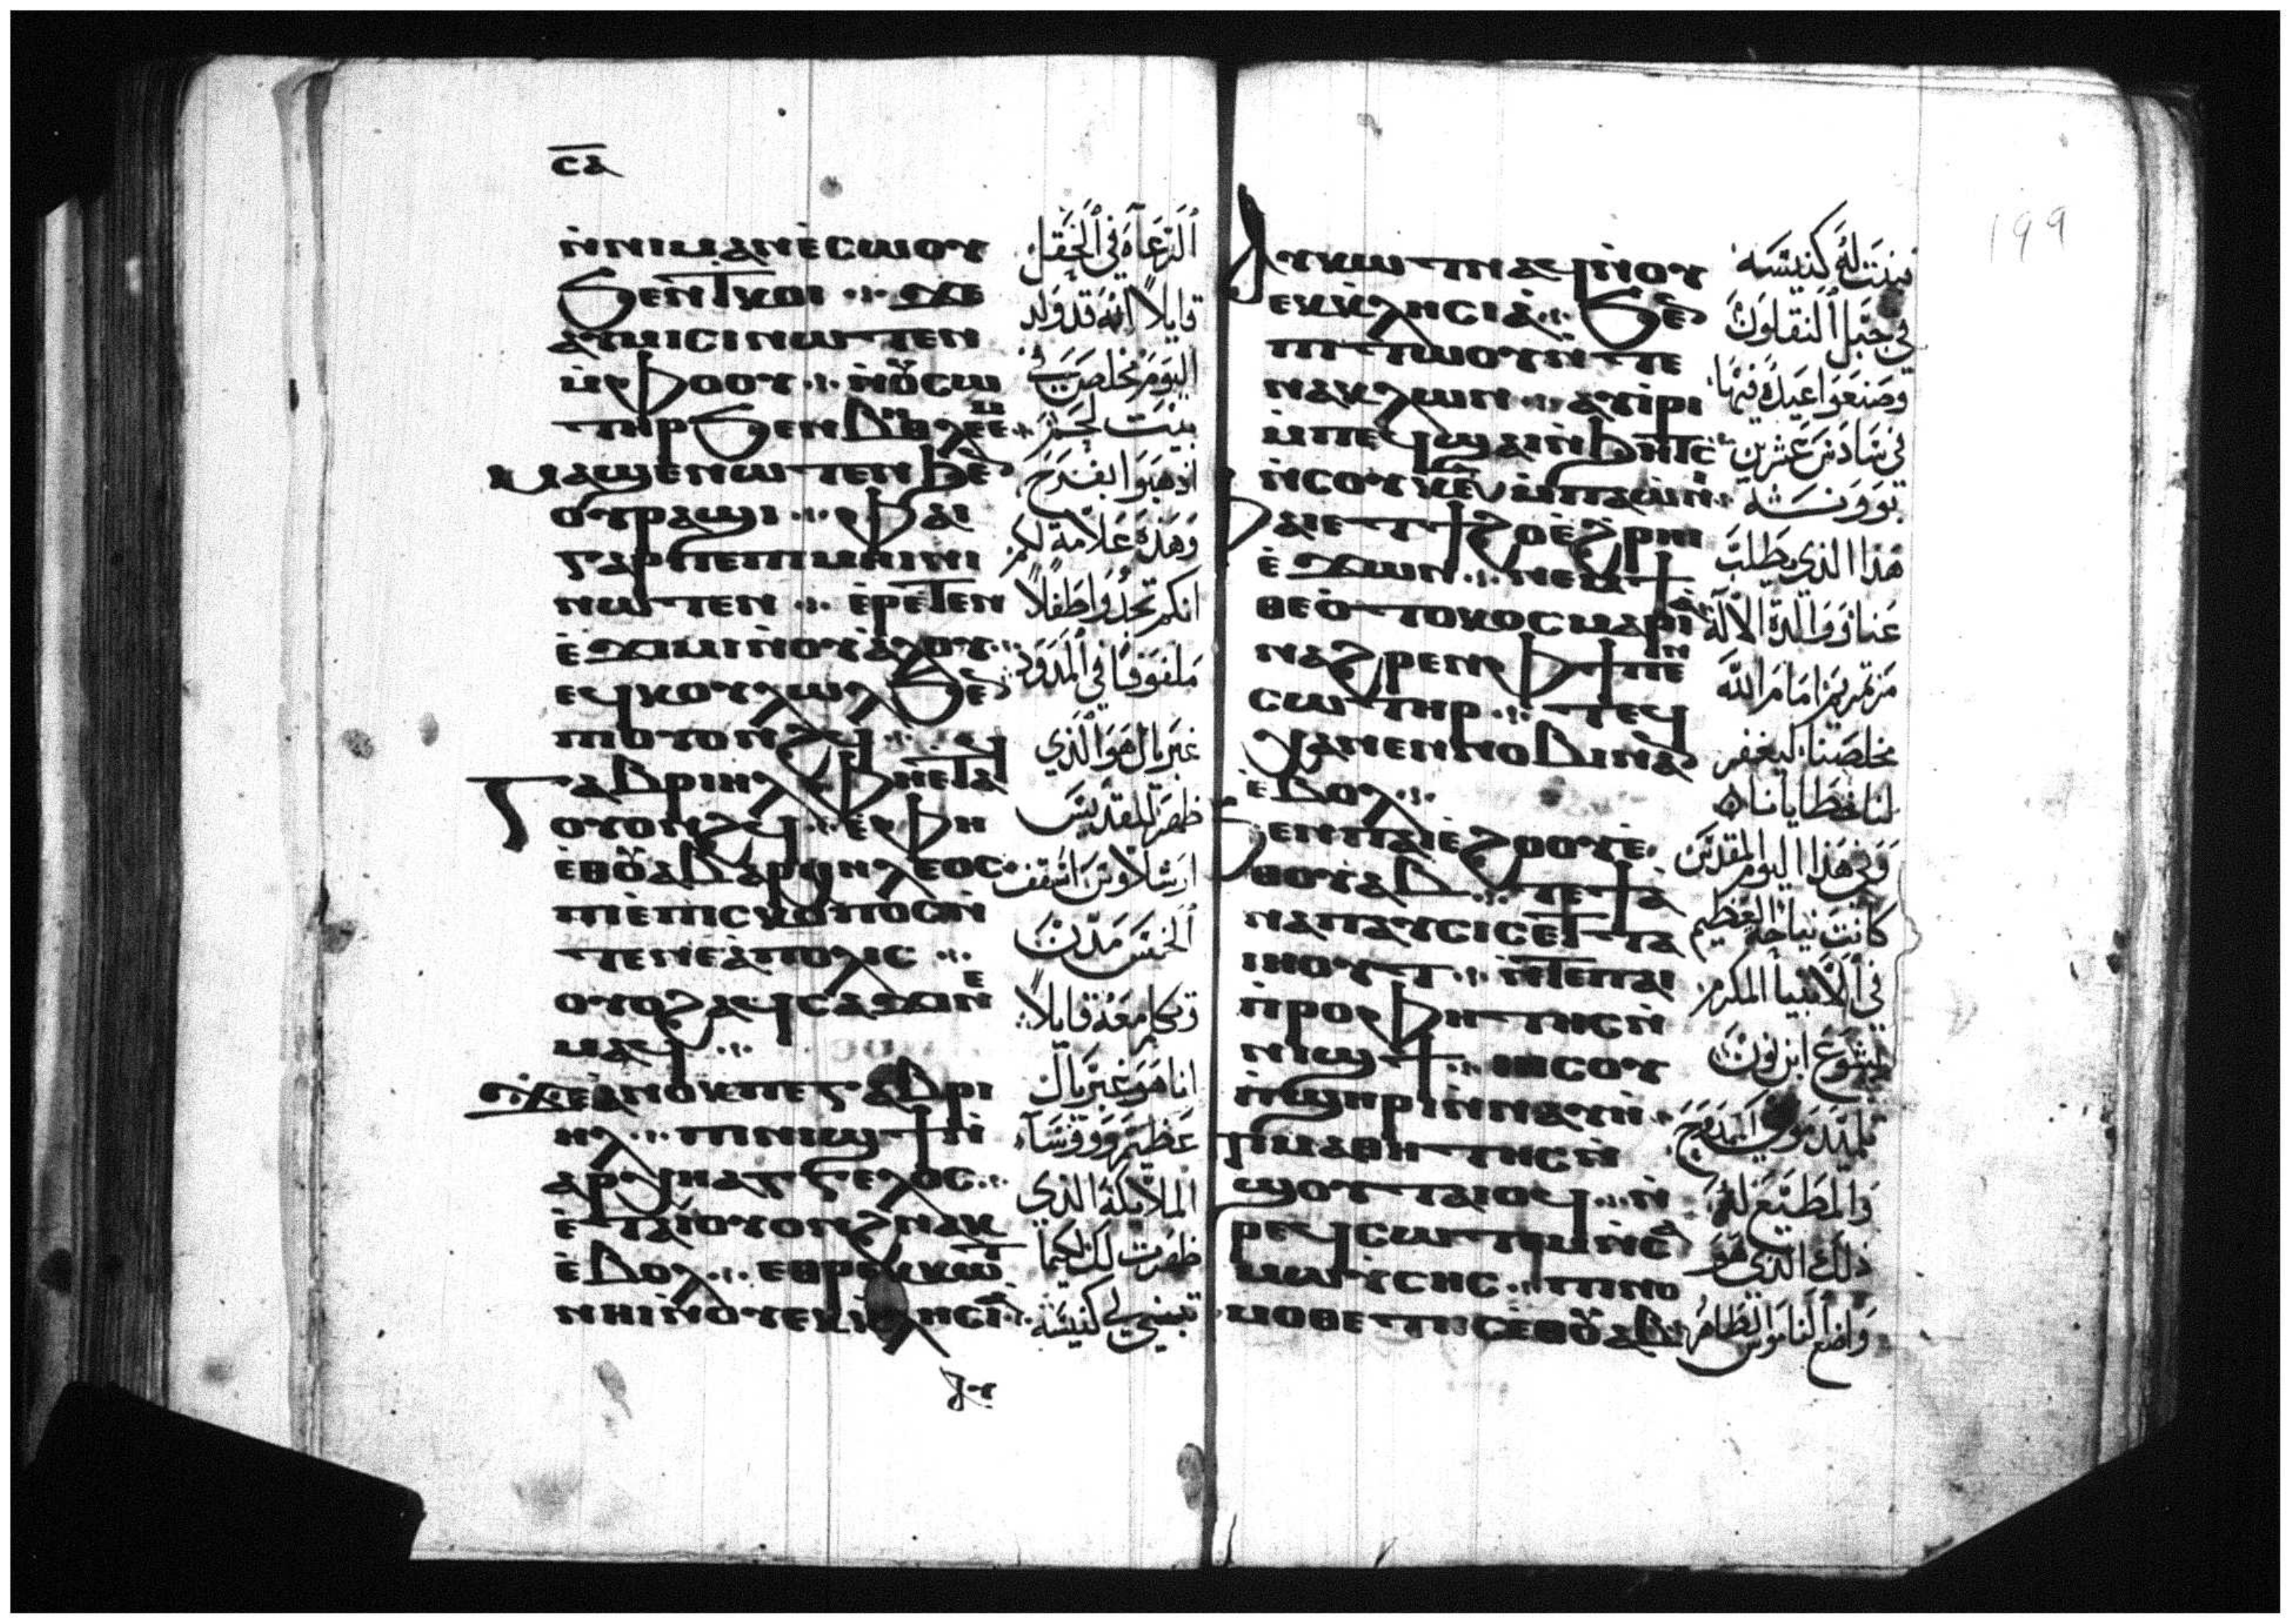 ⲥⲁ
ⲛ̀ⲛⲓⲙⲁⲛⲉ̀ⲥⲱⲟⲩ
ϧⲉⲛϯⲕⲟⲓ ⲝⲉ
ⲁⲩⲙⲓⲥⲓⲛⲱⲧⲉⲛ
ⲙ̀ⲫⲟⲟⲩ
ⲙⲁϣⲉⲛⲱⲧⲉⲛϧⲉ̀
ⲟⲩⲣⲁϣⲓ ⲫⲁⲓ
ⲅⲁⲣⲡⲉⲡⲓⲙⲏⲓⲛⲓ
ⲛⲱⲧⲉⲛ ⲉ̀ⲣⲉⲧⲉⲛ
ⲉ̀ϫⲓⲙⲓⲛ̀ⲟⲩⲁ̀ⲗⲟⲩ
ⲉϥⲕⲟⲩⲗⲱⲗϧⲉ̀
ⲡⲓⲟⲩⲟⲛϩϥ
ⲅⲁⲃⲣⲓⲏⲗⲫⲏⲉⲧⲁ
ⲟⲩⲟⲛϩϥ ⲉ̀ⲫⲏ
ⲉ̀ⲑⲟ̅ⲁⲃⲁⲣⲭⲏⲗⲉⲟⲥ
ⲡⲓⲉ̀ⲡⲓⲥⲕⲟⲡⲟⲥⲛ̀
ⲧⲉⲛⲉⲁⲡⲟⲗⲓⲥ
ⲟⲩⲟϩⲁϥⲥⲁϫⲓⲛⲉ
ⲙⲁϥ
ϫⲉⲁ̀ⲛⲟⲕⲡⲉⲅⲁⲃⲣⲓ
ⲏⲗ ⲡⲓⲛⲓϣϯⲛ̀
ⲁⲣⲭⲏⲁⲅⲅⲉⲗⲟⲥ
ⲉ̀ⲧⲁⲓⲟⲩⲟⲛϩⲛⲁⲕ
ⲉ̀ⲃⲟⲗ ⲉⲑⲣⲉⲕⲕⲱⲧ
ⲛⲏⲓⲛ̀ⲟⲩⲉⲕⲕⲗⲏⲥⲓⲁ
ⲁⲩ
الرعاه في الحقل
قايلاً انه قد ولد
اليوم مخلص في
بيت لحم
اذهبوا بفرح
وهذه علامة لكم
انكم تجدوا طفلاً
ملفوفا في المدود
غبريال هو الذي
ظهر للقديس
ارشلاوس اسقف
الخمس مدن
وتكلم معه قايلاً
انا هو غبريال
عظيم روسآء
الملايكة الذي
ظهرت لك لكيما
تبني لي كنيسة
199
ⲁⲩⲕⲱⲧⲛⲁϥⲛ̀ⲟⲩ
ⲉⲕⲕ̀ⲗⲏⲥⲓⲁ̀ ϧⲉ̀
ⲡⲓⲧⲱⲟⲩⲛ̀ⲧⲉ
ⲛⲁⲕⲗⲱⲛ ⲁⲩⲓ̀ⲣⲓ
ⲙ̀ⲡⲉϥϣⲁⲓⲛ̀ϧⲏⲧⲥ
ⲛ̀ⲥⲟⲩⲕ̅ⲋ̅ⲙ̀ⲡⲁⲱⲛⲓ
ⲫⲁⲓⲉⲧϯϩⲟⲉ̀ϩⲣⲏⲓ
ⲉ̀ϫⲱⲛ ⲛⲉⲙϯ
ⲑⲉⲟ̀ⲧⲟⲕⲟⲥⲙⲁⲣⲓⲁ̀
ⲛⲁϩⲣⲉⲛⲫϯⲡⲉⲛ
ⲥⲱⲧⲏⲣ ⲧⲉϥ
ⲭⲁⲛⲉⲛⲛⲟⲃⲓⲛⲁ
ⲉ̀ⲃⲟⲗ
ϧⲉⲛⲡⲁⲓⲉ̀ϩⲟⲟⲩⲉ̀
ⲑⲟⲩⲁⲃ ⲧⲉϯⲁ̀
ⲛⲁⲡⲁⲩⲥⲓⲥⲉⲧⲧⲁ
ⲓⲏⲟⲩⲧ ⲛ̀ⲧⲉⲡⲁⲓ
ⲡ̀ⲣⲟⲫⲏⲧⲏⲥⲛ̀
ⲛⲓϣϯ ⲓⲏⲥⲟⲩ
ⲛ̀ϣⲏⲣⲓⲛ̀ⲛⲁⲩⲏ̀
ⲡⲓⲙⲁⲑⲏⲧⲏⲥⲛ̀
ϣⲟⲩⲧⲁⲓⲟϥ ⲛ̀
ⲣⲉϥⲥⲱⲧⲉⲙⲛ̀ⲥⲁ
ⲙⲱⲩ̀ⲥⲏⲥ ⲡⲓⲛⲟ
ⲙⲟⲑⲉⲧⲏⲥⲉ̀ⲑⲟ̅ⲁⲃ
فبنت له كنيسة
في جبل النقلون
وصنعوا عيده فيها
في سادس عشرين
بوونه
هذا الذي يطلب
عنا ووالدة الآله
مرتمريم امام الله
مخلصنا ليغفر
لنا خطايانا
وفي هذا اليوم المقدس
كانت نياحة العظيم
في الانبيا المكرم
يشوع ابن نون
تلميذ موسى الممدوح
والمطيع له
ذلك الذي هو
واضع الناموس الطاهر